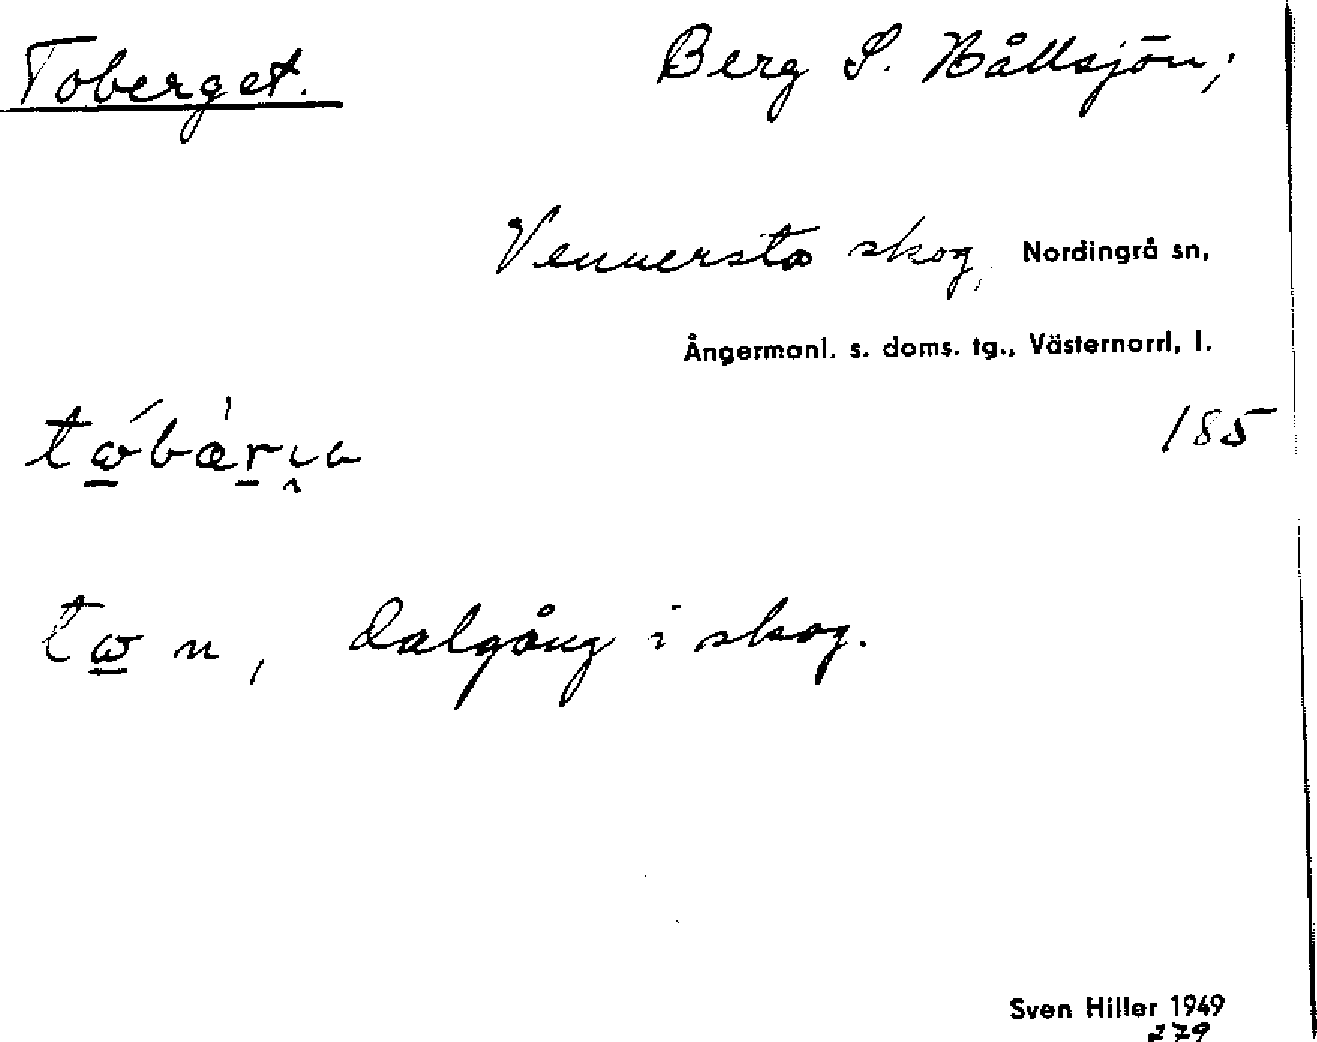 Toberget. Berg S. Hällsjön;
Vennersta skog, Nordingrå sn,
Ångermanl. s. doms. tg., Västernorrl. l.
185
dalgång i skog.
Sven Hiller 1949
279